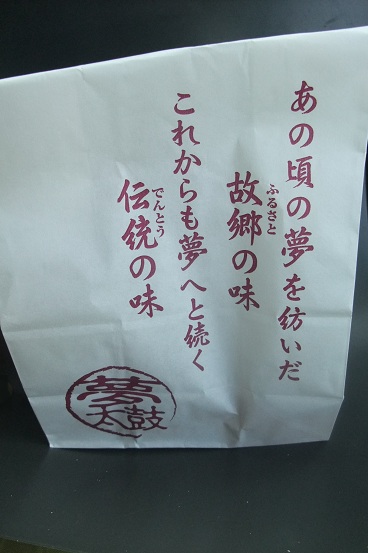 あの頃の夢を紡いだ
故郷の味
ふるさと
これからも夢へと続く
伝統の味
でんとう
夢
太鼓